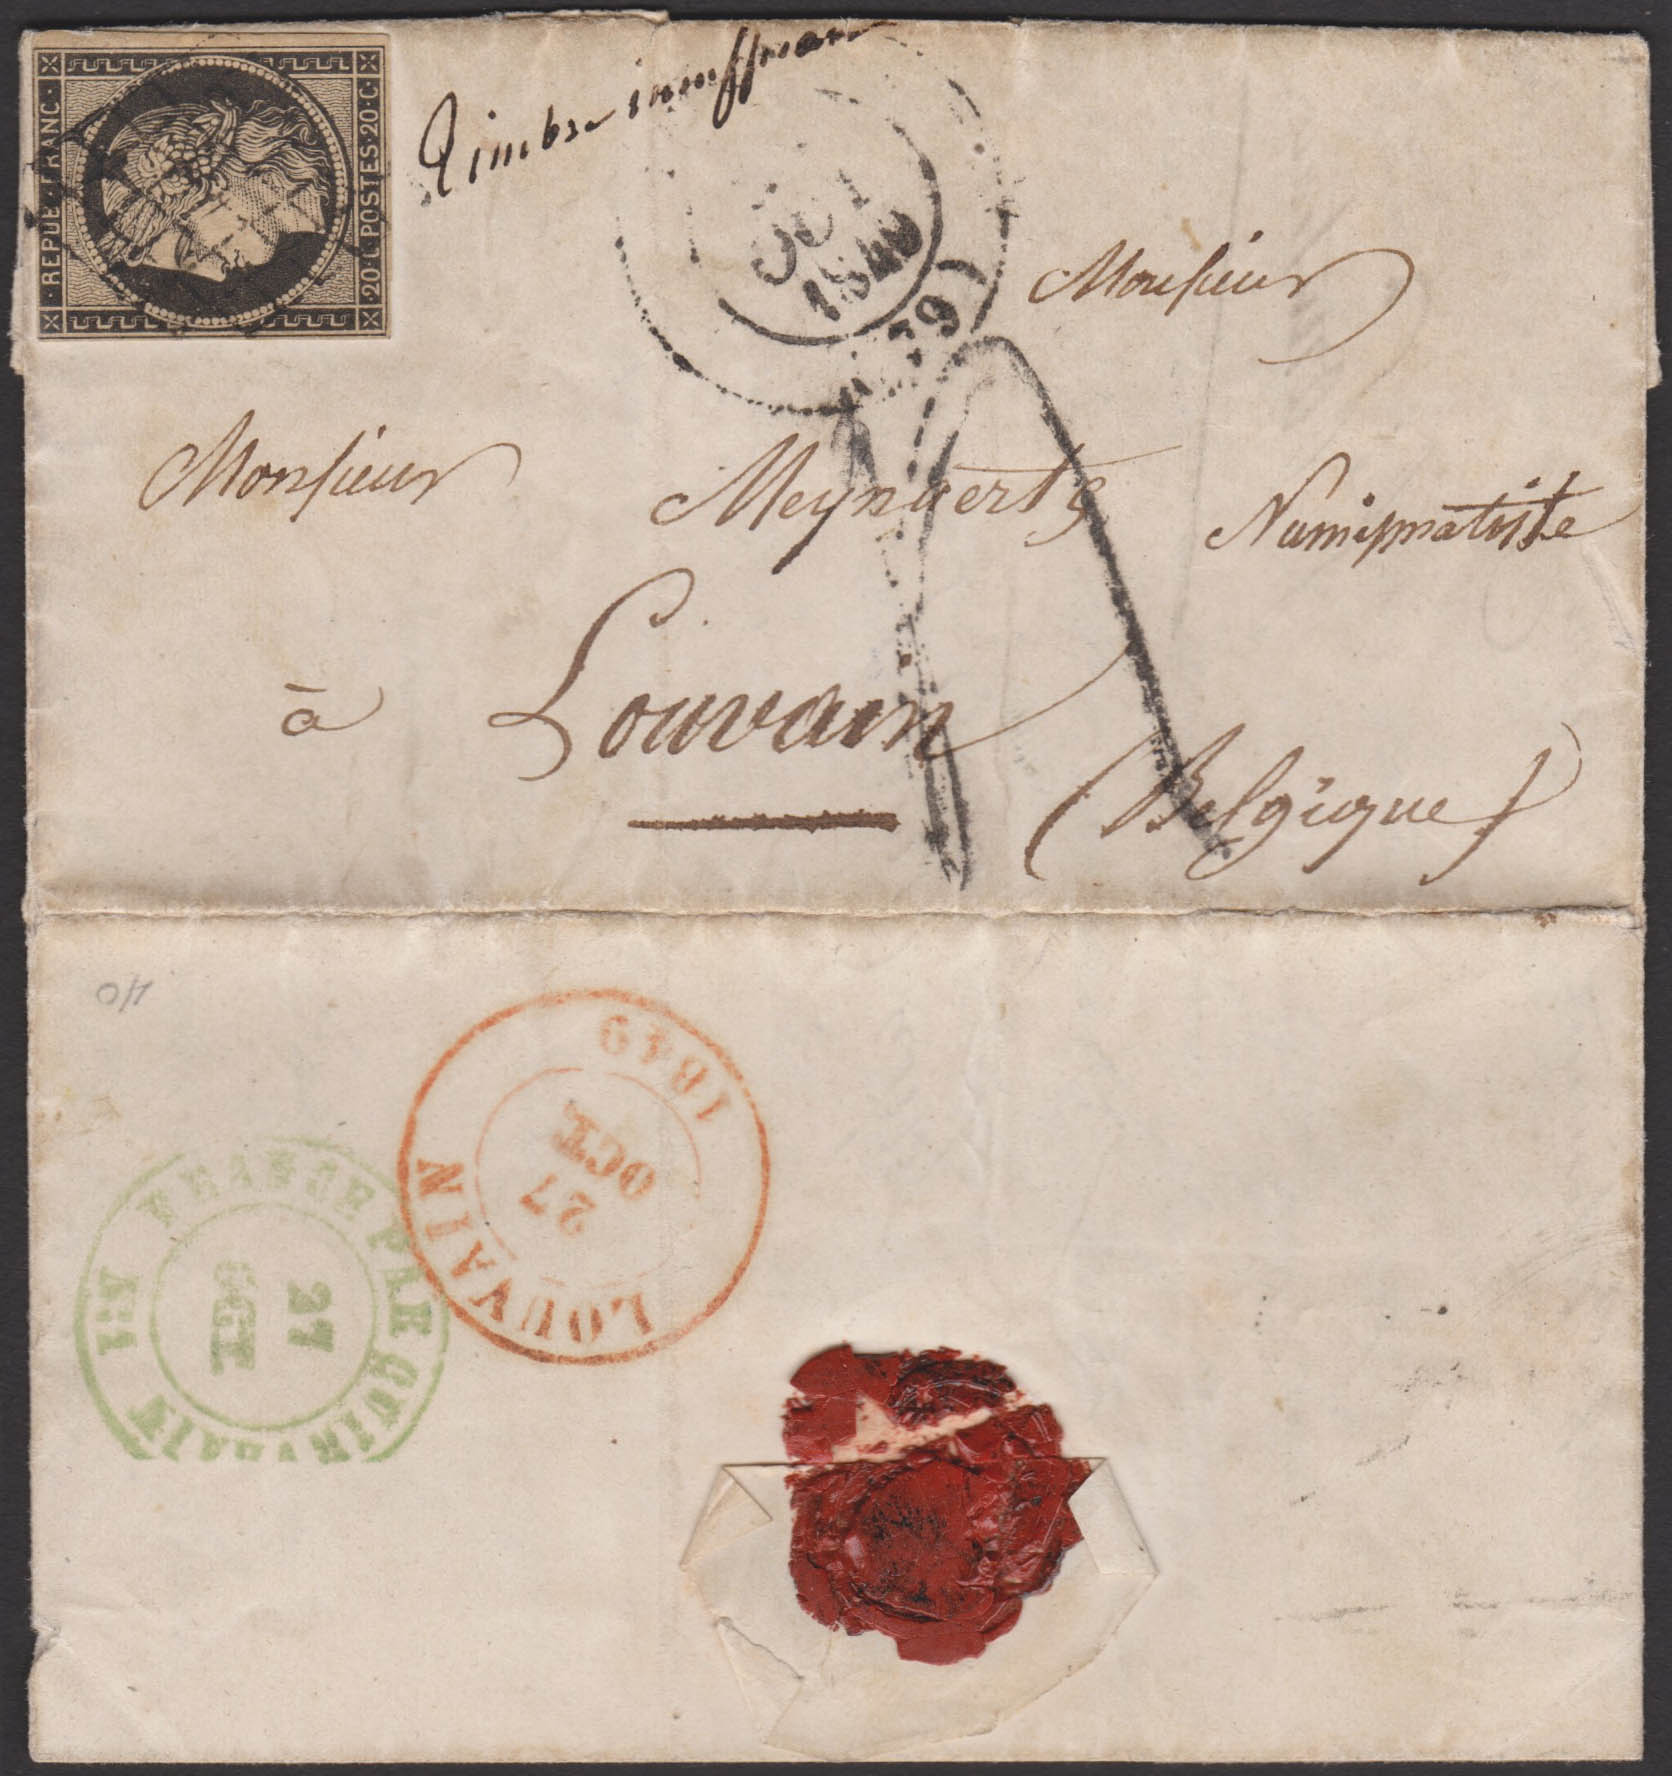 REPUB·FRANC·
20·C·POSTES·20·C·
Timbre insuffisant
OCT
1849
Monsieur
Monsieur Meynaerts Numismatiste
à Louvain
(Belgique)
LOUVAIN
27
OCT.
1849
FRANCE PAR QUIEVRAIN
27
OCT